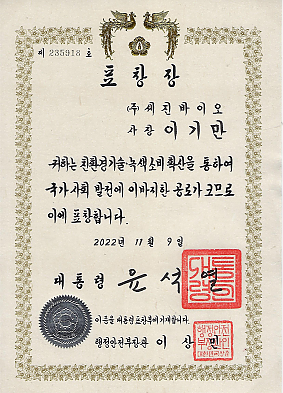 제 235918 호
표창장
(주)세진바이오
사장 이기만
귀하는 친환경기술·녹색소비 확산을 통하여
국가 사회 발전에 이바지한 공로가 크므로
이에 표창합니다.
2022년 11월 9일
대통령 윤석열
이 증을 대통령 표창부에 기재합니다.
행정안전부장관 이상민